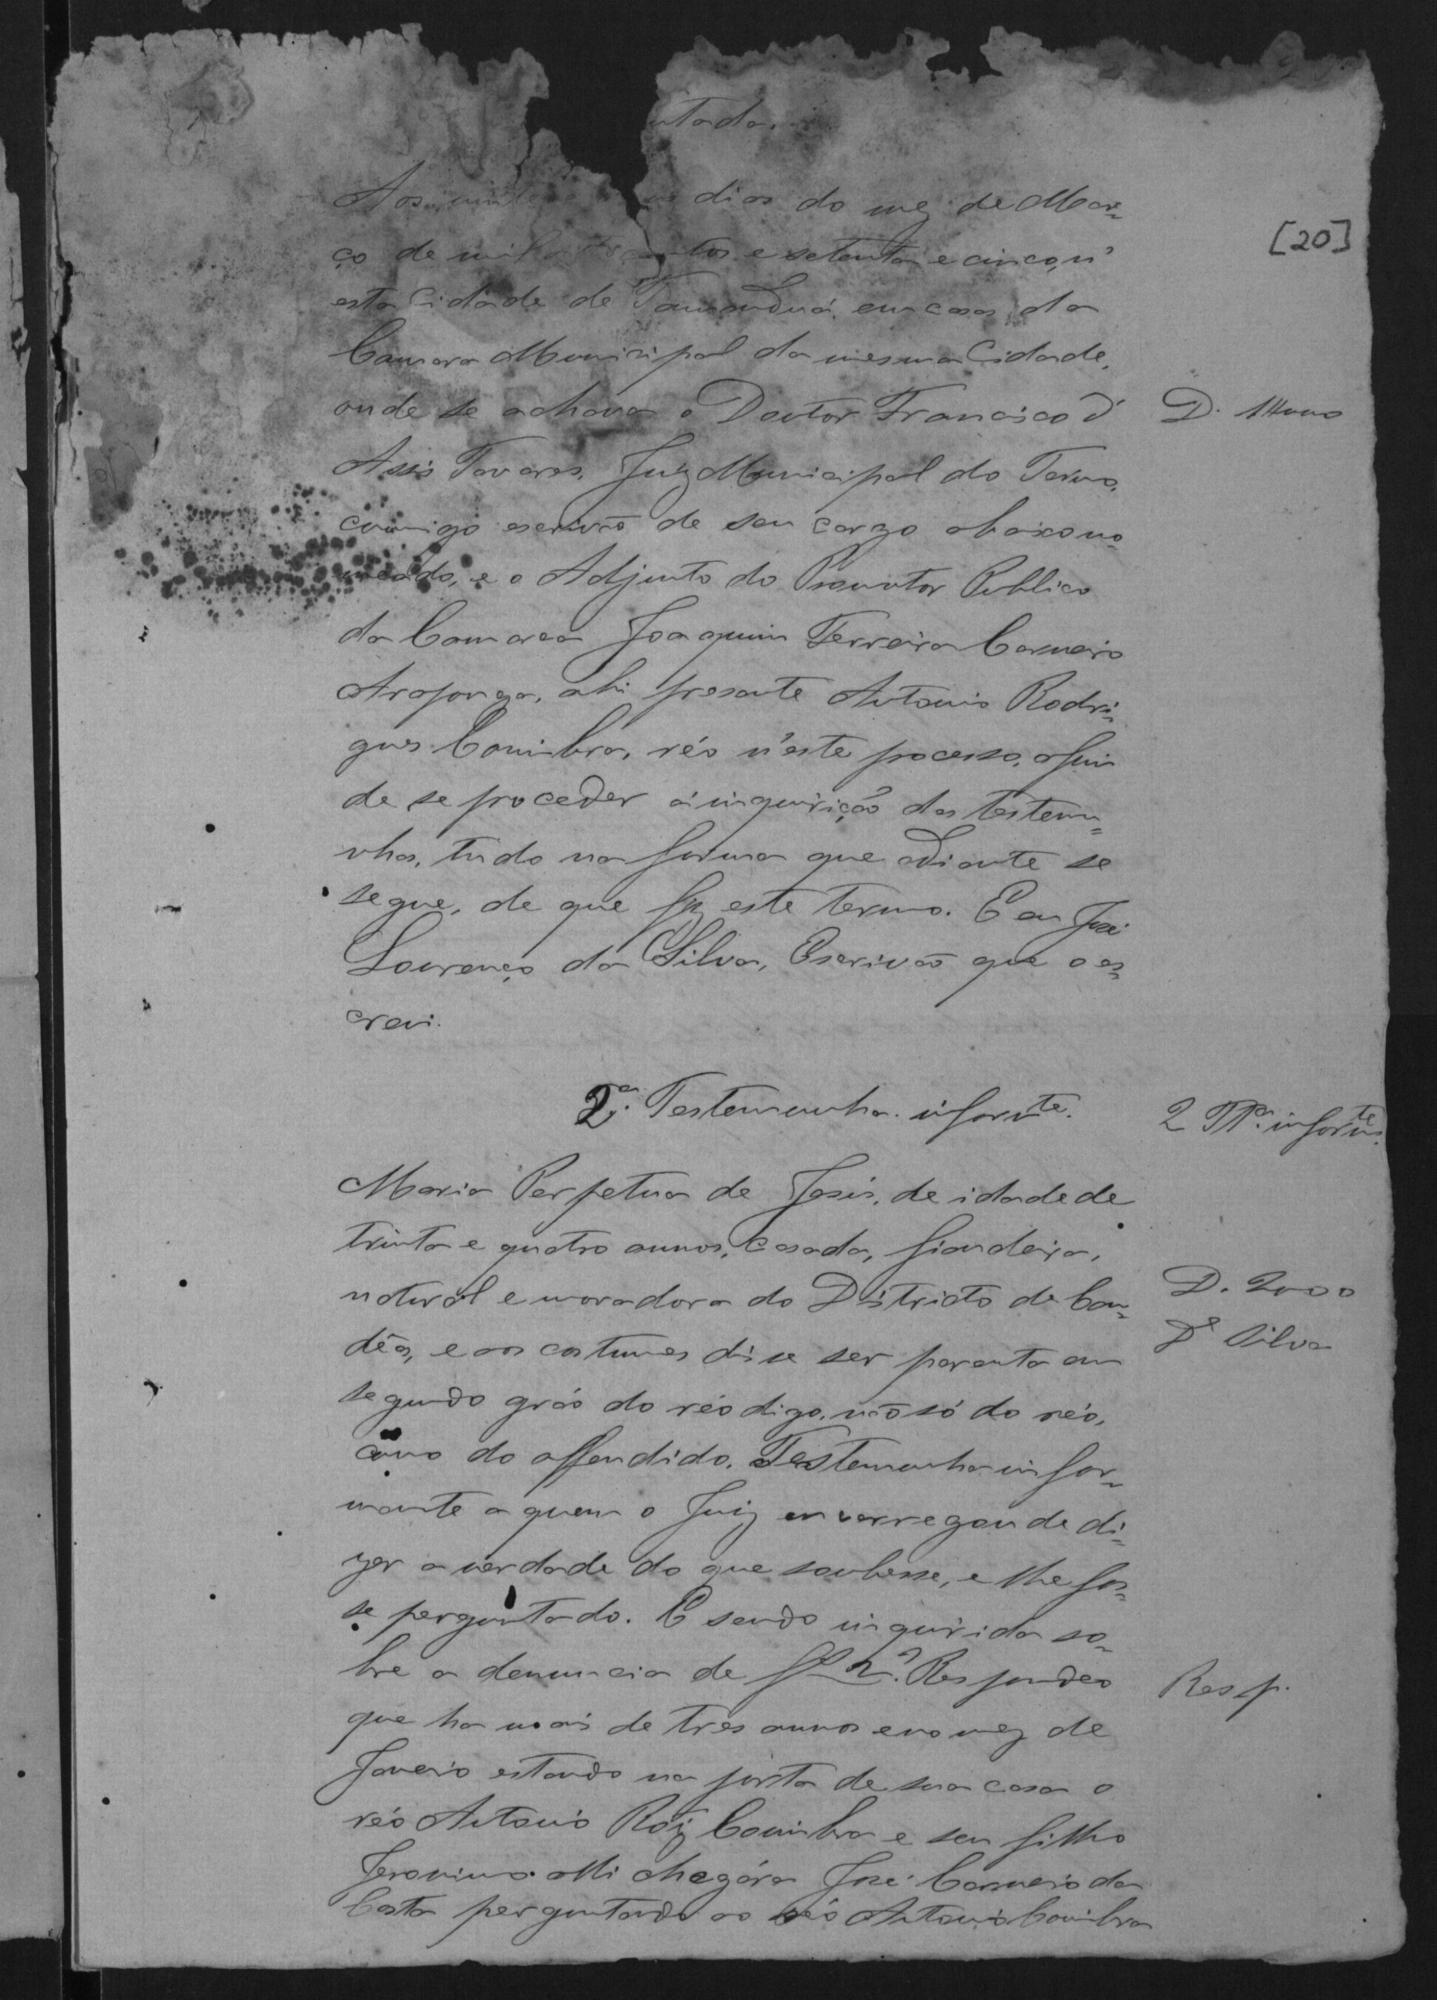 ntada.
Aos vinte dias do mez de Mar-
ço de mil e setenta e cinco, n'
esta Cidade de Tamanduá, em casa da
Camara Municipal da mesma Cidade,
onde se achava o Doutor Francisco d'
Assis Tavares, Juiz Municipal do Termo,
comigo escrivão de seu cargo abaixo no-
meado, e o Adjunto do Promotor Publico
da Comarca Joaquim Ferreira Carneiro
Araponga, ahi presente Antonio Rodri-
gues Coimbra, réo n'este processo, afim
de se proceder á inquirição das testemu-
nhas, tudo na forma que adiante se
segue, de que fiz este termo. E eu José
Lourenço da Silva, Escrivão que o es-
crevi.
2ª. Testemunha informte.
Maria Perpetua de Jesus, de idade de
trinta e quatro annos, casada, fiandeira,
natural e moradora do Districto de Can-
déas, e aos costumes disse ser parenta em
segundo gráo do réo digo, não só do réo,
como do offendido. Testemunha infor-
mante a quem o Juiz encarregou de di-
zer a verdade do que soubesse, e lhe fos-
se perguntado. E sendo inquirida so-
bre a denuncia de fl 2ª. Respondeo
que ha mais de tres annos e no mez de
Janeiro estando na porta de sua casa o
réo Antonio Roiz Coimbra e seu filho
Jeronimo alli chegára José Carneiro da
Costa perguntando ao réo Antonio Coimbra
[20]
D.
2 Tªa. informte.
D. 2000
De Silva
Resp.